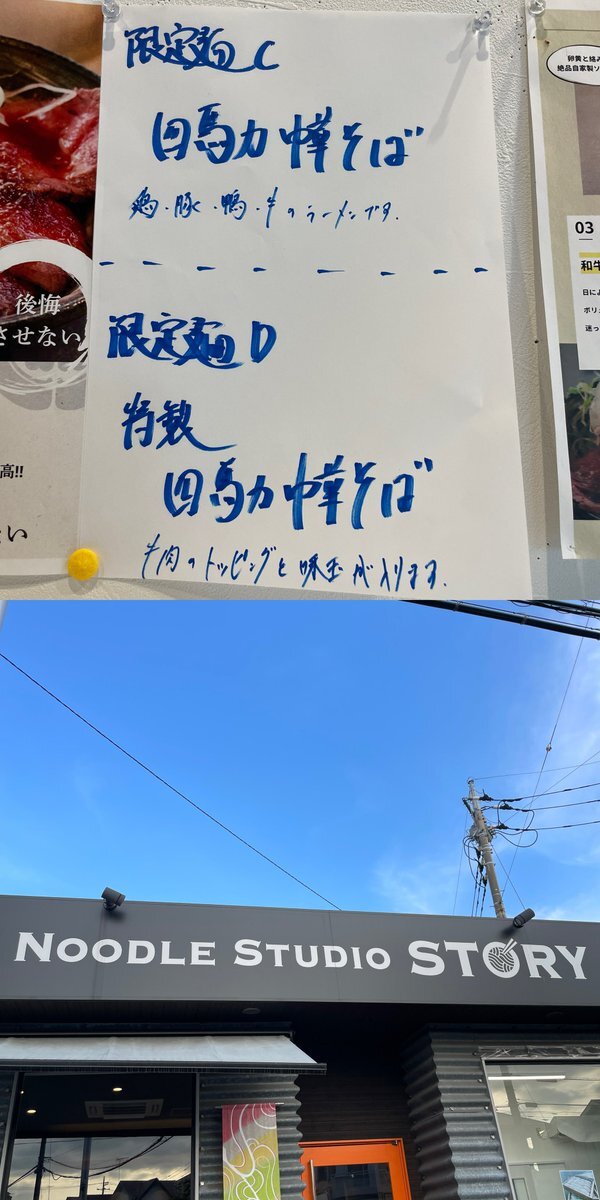 限定麺C
四馬力中華そば
鶏・豚・鴨・牛のラーメンです.
限定麺D
特製
四馬力中華そば
牛肉のトッピングと味玉が入ります.
後悔
させない
高!!
たい
卵黄と絡み
絶品自家製ソ
03
和牛
日によ
ポリュ
迷っ
NOODLE STUDIO STORY